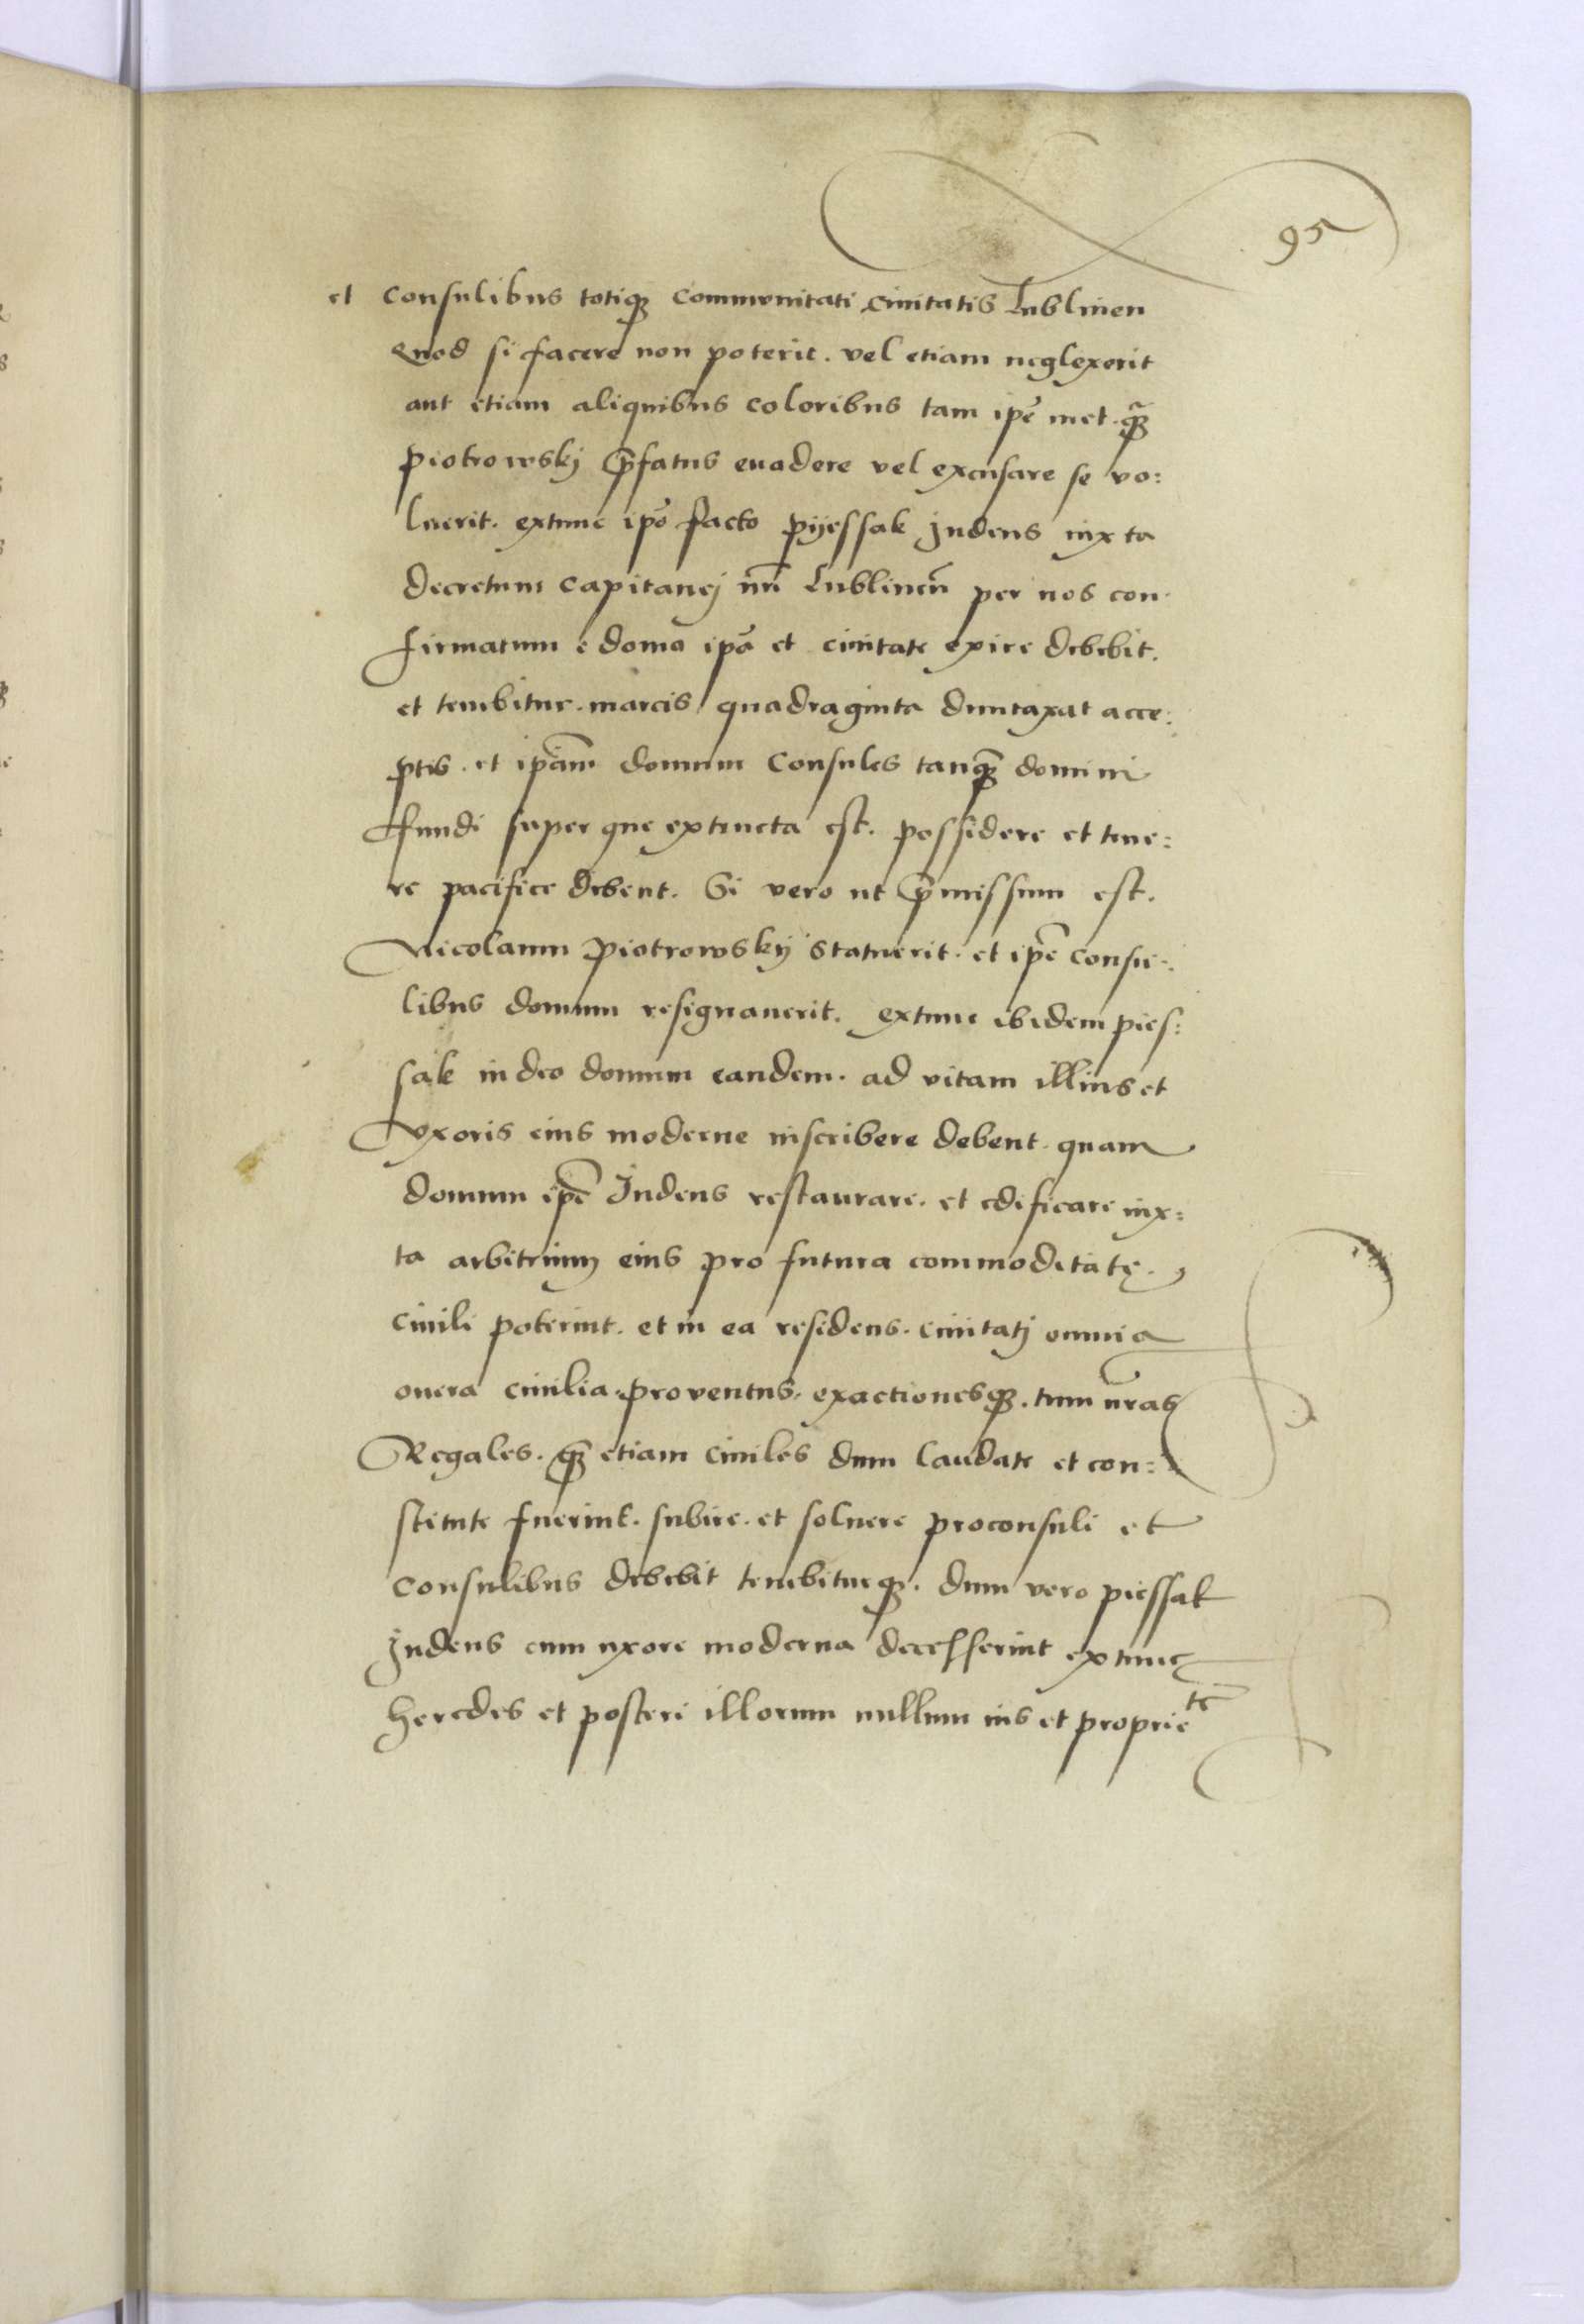 95
et consulibus totiq3 communitati ciuitatis Lublinen
Quod si facere non poterit. vel etiam neglexerit
aut etiam aliquibus coloribus tam ipē met. q̃3
piotrowskj p̄fatus euadere vel excusare se vo:
luerit. extunc ipō facto pijessak Judeus iuxta
decretum capitanej nr̄i Lublineñ per nos con-
firmatum e domo ipā et ciuitate exire debebit.
et tenebitur. marcis quadraginta duntaxat acce:
ptis. et ipām domum Consules tanq̃3 domini
ffundi super que extructa est. possidere et tene:
re pacifice debent. Si vero ut p̄missum est.
Nicolaum Piotrowskij statuerit. et ipē consu-
libus domum resignauerit. extunc ibidem pies:
sak iudeo domum eandem. ad vitam illius et
vxoris eius moderne inscribere debent. quam
domum ipē Judeus restaurare. et edificare iux:
ta arbitrium eius pro futura commoditatę.
ciuili poterint. et in ea residens. ciuitatj omnia
onera ciuilia. proventus. exactionesq3. tum nr̄as
Regales. q̃3 etiam ciuiles dum laudate et con:
stitute fuerint. subire. et soluere proconsuli et
consulibus debebit tenebiturq3. dum vero piessak
Judeus cum uxore moderna decesserint extunc
heredes et posteri illorum nullum ius et proprietē